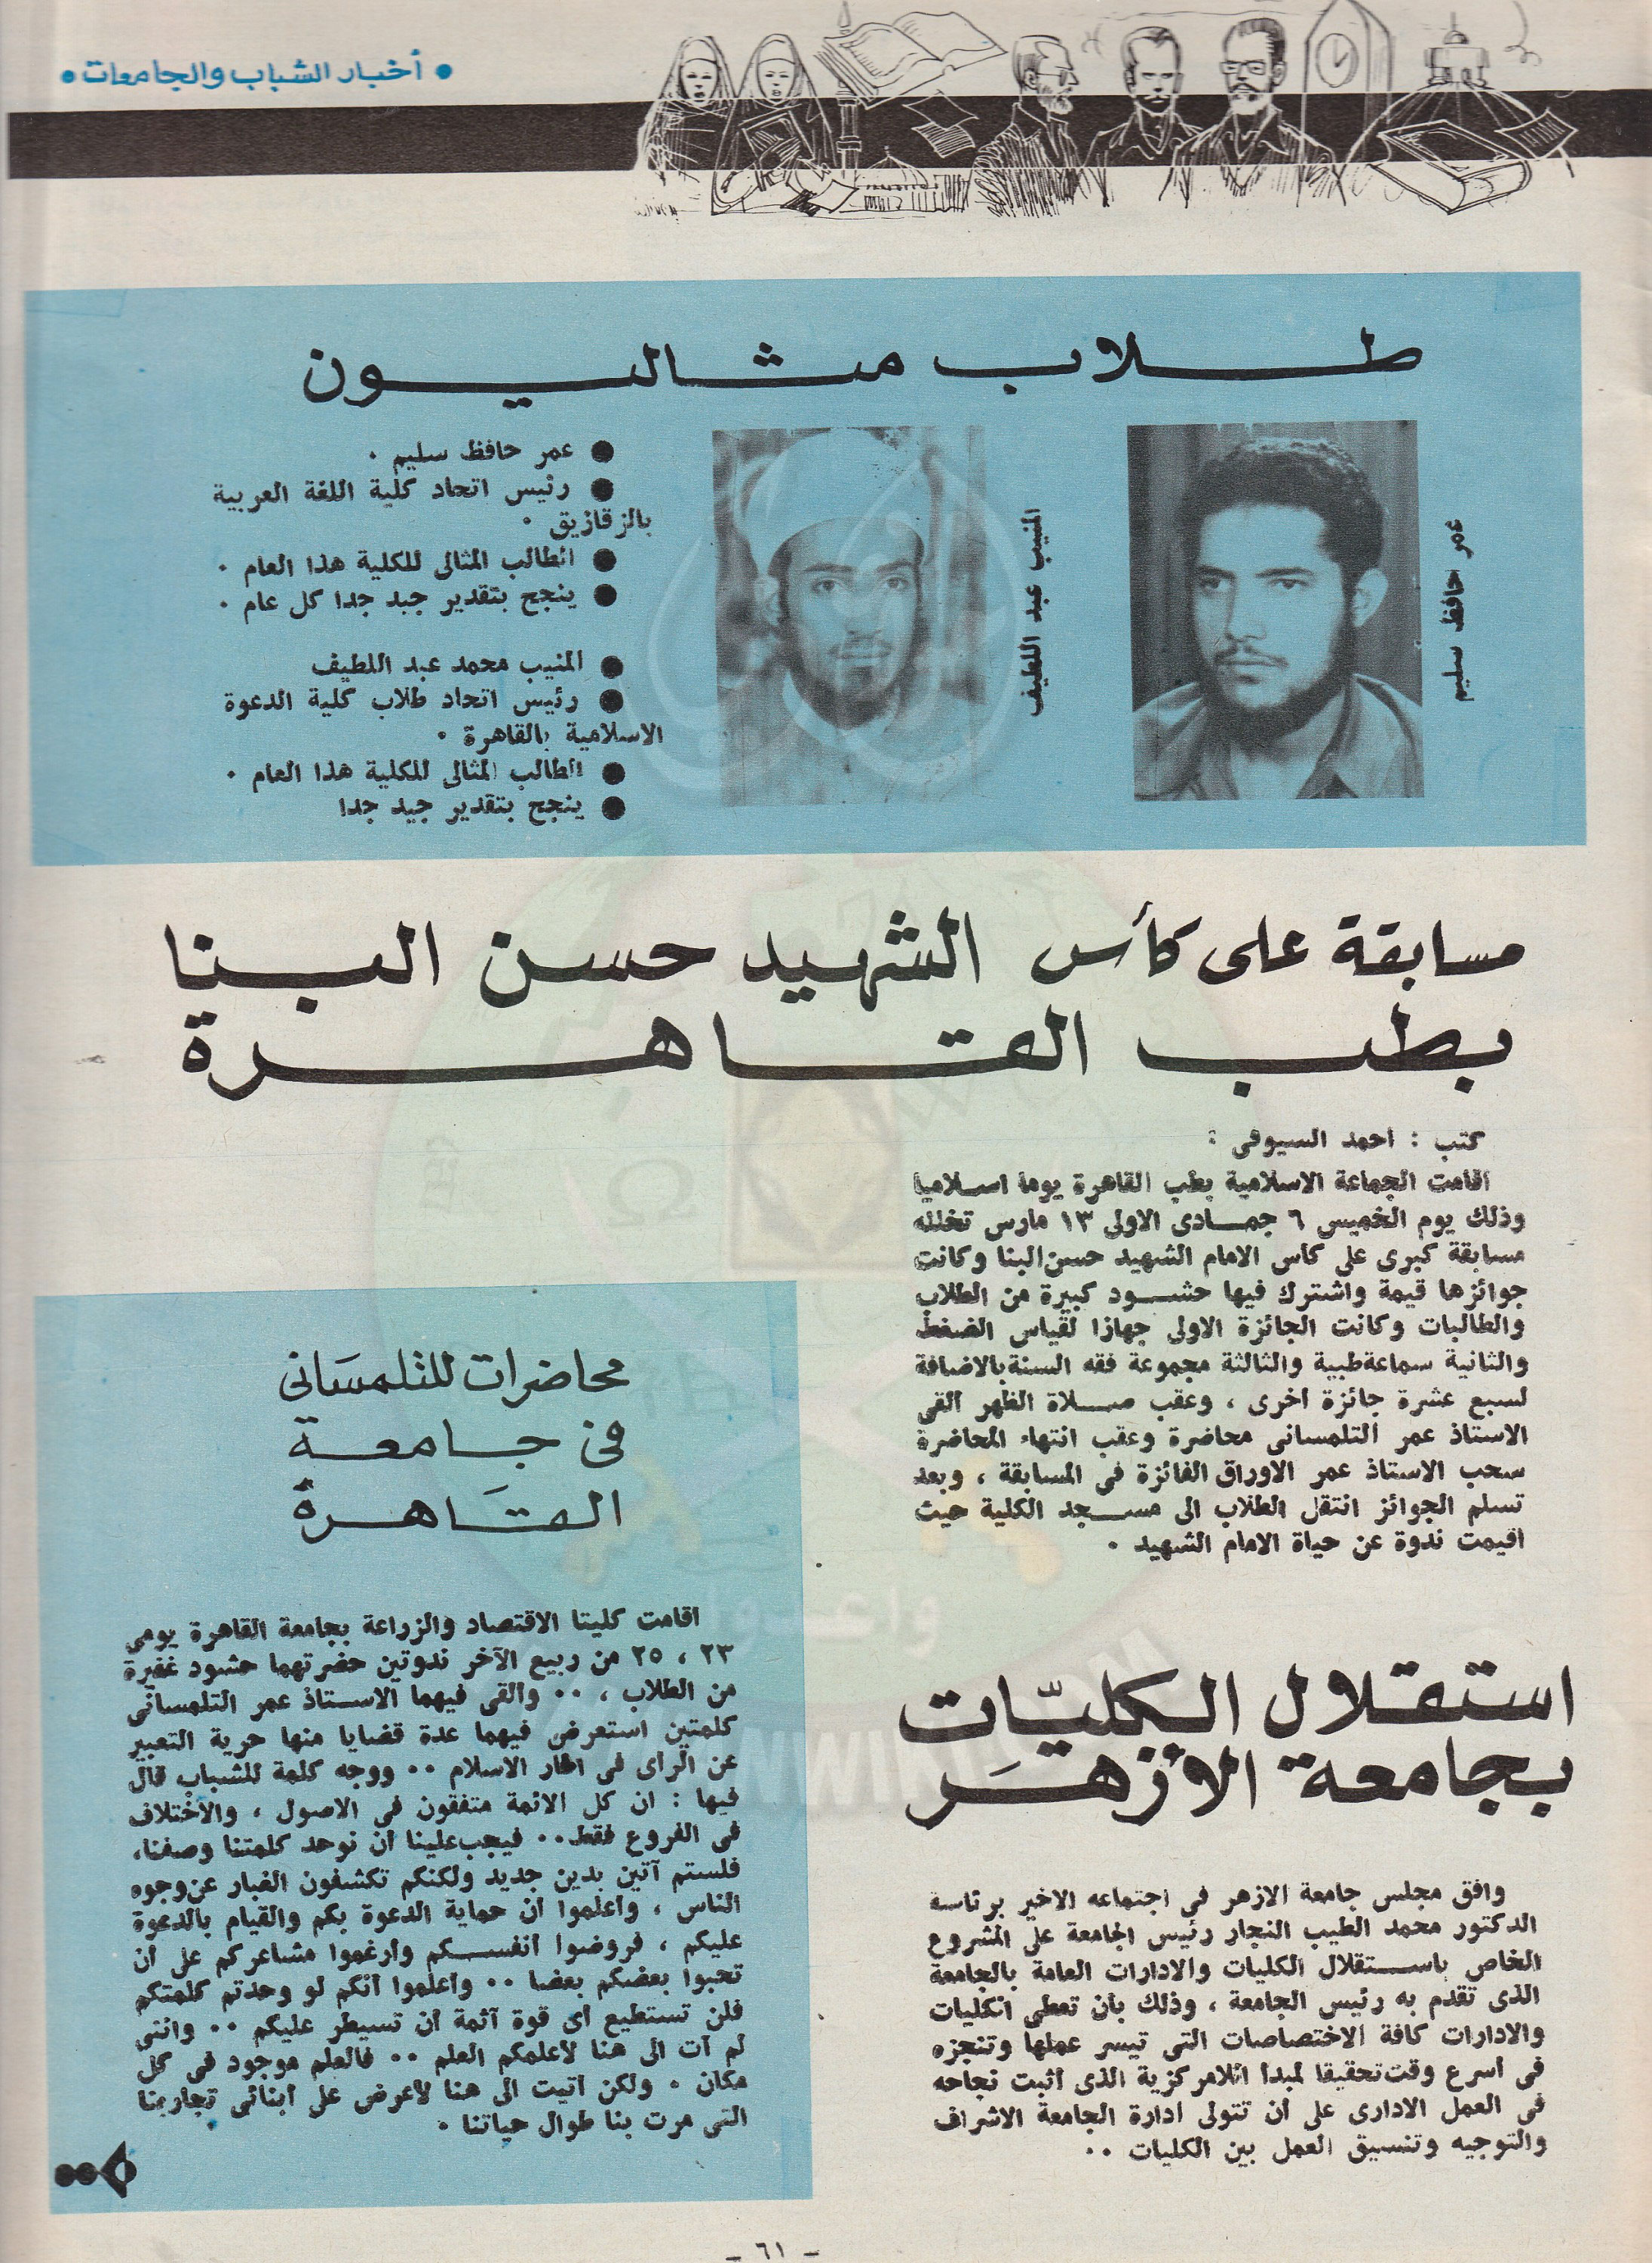 • أخبار الشباب والجامعات •
طلاب مثاليون
عمر حافظ سليم
المنيب عبد اللطيف
● عمر حافظ سليم .
● رئيس اتحاد كلية اللغة العربية
بالزقازيق .
● الطالب المثالى للكلية هذا العام .
● ينجح بتقدير جيد جدا كل عام .
● المنيب محمد عبد اللطيف
● رئيس اتحاد طلاب كلية الدعوة
الاسلامية بالقاهرة .
● الطالب المثالى للكلية هذا العام .
● ينجح بتقدير جيد جدا
مسابقة على كأس الشهيد حسن البنا
بطب القاهرة
كتب : احمد السيوفى :
اقامت الجماعة الاسلامية بطب القاهرة يوما اسلاميا
وذلك يوم الخميس ٦ جمادى الاولى ١٣ مارس تخلله
مسابقة كبرى على كأس الامام الشهيد حسن البنا وكانت
جوائزها قيمة واشترك فيها حشود كبيرة من الطلاب
والطالبات وكانت الجائزة الاولى جهازا لقياس الضغط
والثانية سماعة طبية والثالثة مجموعة فقه السنة بالاضافة
لسبع عشرة جائزة اخرى ، وعقب صلاة الظهر القى
الاستاذ عمر التلمسانى محاضرة وعقب انتهاء المحاضرة
سحب الاستاذ عمر الاوراق الفائزة فى المسابقة ، وبعد
تسلم الجوائز انتقل الطلاب الى مسجد الكلية حيث
اقيمت ندوة عن حياة الامام الشهيد .
استقلال الكليّات
بجامعة الأزهَر
وافق مجلس جامعة الازهر فى اجتماعه الاخير برئاسة
الدكتور محمد الطيب النجار رئيس الجامعة على المشروع
الخاص باستقلال الكليات والادارات العامة بالجامعة
الذى تقدم به رئيس الجامعة ، وذلك بأن تعطى الكليات
والادارات كافة الاختصاصات التى تيسر عملها وتنجزه
فى أسرع وقت تحقيقا لمبدأ اللامركزية الذى أثبت نجاحه
فى العمل الادارى على أن تتولى ادارة الجامعة الاشراف
والتوجيه وتنسيق العمل بين الكليات ..
محاضرات للتلمسَانى
فى جامعة
القَاهرة
اقامت كليتا الاقتصاد والزراعة بجامعة القاهرة يومى
٢٣ ، ٢٥ من ربيع الآخر ندوتين حضرتهما حشود غفيرة
من الطلاب ، .. والقى فيهما الاستاذ عمر التلمسانى
كلمتين استعرض فيهما عدة قضايا منها حرية التعبير
عن الرأى فى اطار الاسلام .. ووجه كلمة للشباب قال
فيها : ان كل الائمة متفقون فى الاصول ، والاختلاف
فى الفروع فقط .. فيجب علينا أن نوحد كلمتنا وصفنا،
فلستم آتين بدين جديد ولكنكم تكشفون الغبار عن وجوه
الناس ، واعلموا ان حماية الدعوة بكم والقيام بالدعوة
عليكم ، فروضوا أنفسكم وارغموا مشاعركم على أن
تحبوا بعضكم بعضا .. واعلموا أنكم لو وحدتم كلمتكم
فلن تستطيع أى قوة آثمة أن تسيطر عليكم .. واننى
لم آت الى هنا لأعلمكم العلم .. فالعلم موجود فى كل
مكان . ولكن أتيت الى هنا لأعرض على أبنائى تجاربنا
التى مرت بنا طوال حياتنا .
- ٦١ -